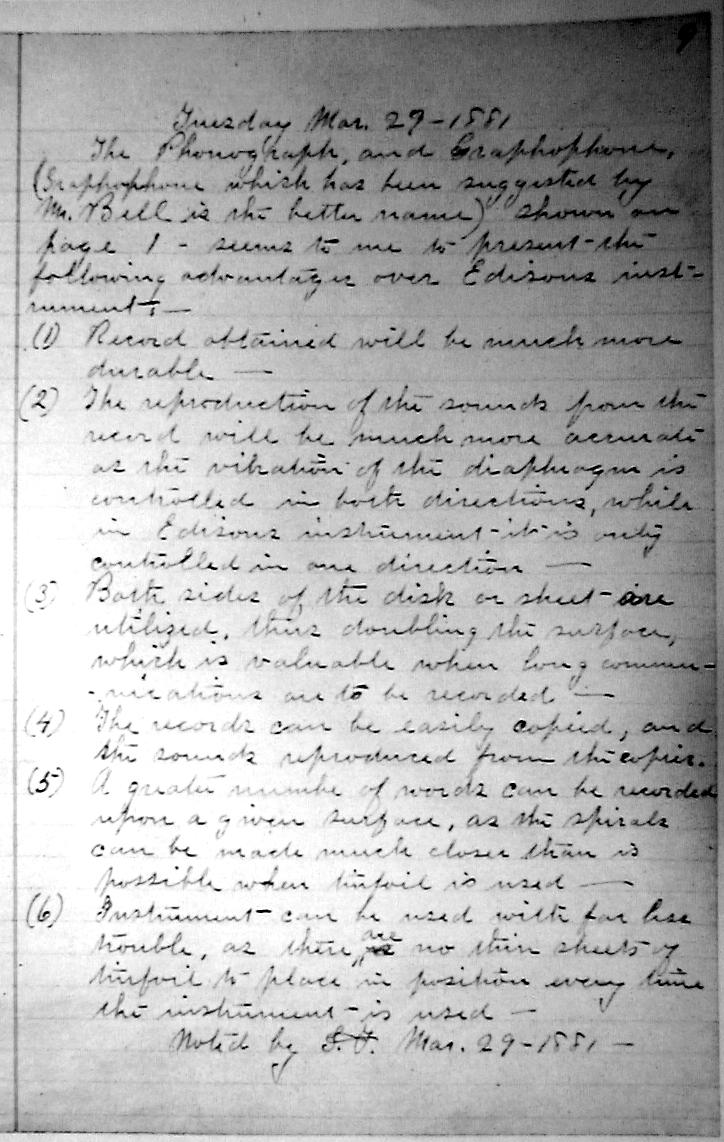 9
Tuesday Mar. 29-1881
The Phonograph, and Graphophone,
(Graphophone which has been suggested by
Mr. Bell is the better name) shown on
page 1 - seems to me to present the
following advantages over Edisons inst-
rument; —
(1) Record obtained will be much more
durable —
(2) The reproduction of the sounds from the
record will be much more accurate
as the vibration of the diaphragm is
controlled in both directions, while
in Edisons instrument it is only
controlled in one direction —
(3) Both sides of the disk or sheet are
utilized, thus doubling the surface,
which is valuable when long commu-
-nications are to be recorded —
(4) The records can be easily copied, and
the sounds reproduced from the copies.
(5) A greater numbe of words can be recorded
upon a given surface, as the spirals
can be made much closer than is
possible when tinfoil is used —
(6) Instrument can be used with far less
trouble, as there are no thin sheets of
tinfoil to place in position every time
the instrument is used —
Noted by S.T. Mar. 29-1881 —